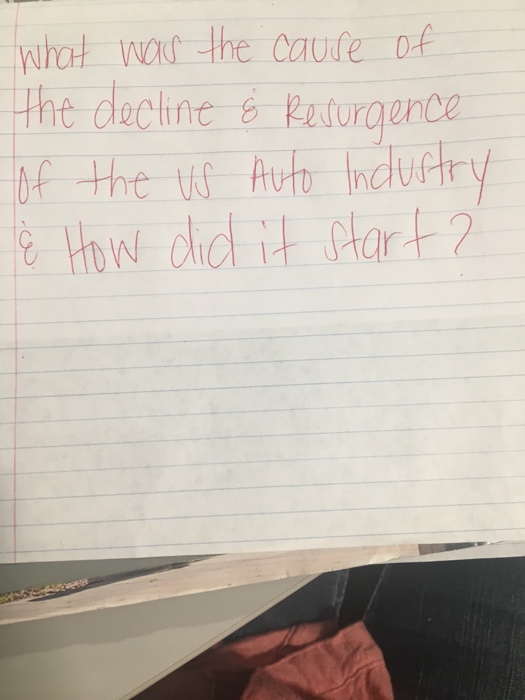 What was the cause of
the decline & Resurgence
of the US Auto Industry
& How did it start?